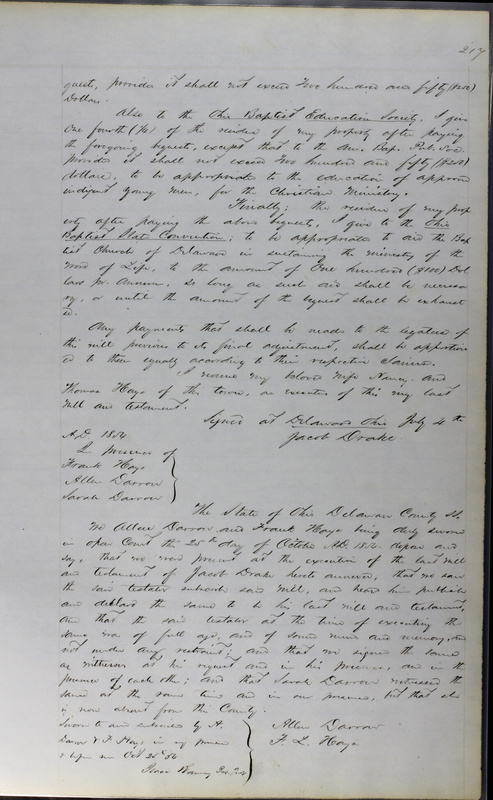 217
quest, provided it shall not exceed two hundred and fifty ($250)
Dollars.
Also to the Ohio Baptist Education Society, I give
One fourth (¼) of the residue of my property after paying
the foregoing bequests, except that to the Am. Bap. Pub. Soc.
provided it shall not exceed two hundred and fifty ($250)
dollars, to be appropriated to the education of approved
indigent young men, for the Christian Ministry.
Finally; the residue of my prop
erty after paying the above bequests, I give to the Ohio
Baptist State Convention; to be appropriated to aid the Bap
tist Church of Delaware in sustaining the ministry of the
word of Life, to the amount of One hundred ($100) Dol
lars pr. Annum, so long as such aid shall be necessa
ry, or until the amount of the bequest shall be exhaust
ed.
Any payments that shall be made to the legatees of
this will previous to its final adjustment, shall be apportion
ed to them equally according to their respective claims.
I name my beloved wife Nancy and
Thomas Hays of this town, as executors of this my last
will and testament.
Signed at Delaware Ohio July 4th
A.D. 1854 Jacob Drake
In presence of
Frank Hays
Allen Darrow
Sarah Darrow
The State of Ohio Delaware County SS.
We Allen Darrow and Frank Hays being duly sworn
in open Court the 25th day of October A.D. 1854 depose and
say, that we were present at the execution of the last will
and testament of Jacob Drake hereto annexed, that we saw
the said testator subscribe said will, and heard him publish
and declare the same to be his last will and testament,
and that the said testator at the time of executing the
same was of full age, and of sound mind and memory, and
not under any restraint; and that we signed the same
as witnesses at his request and in his presence, and in the
presence of each other; and that Sarah Darrow witnessed the
same at the same time and in our presence, but that she
is now absent from the County.
Sworn to and subscribed by A. Allen Darrow
Darrow & F. Hays in my presence F. L. Hays
& before me Oct 25th 54
Isaac